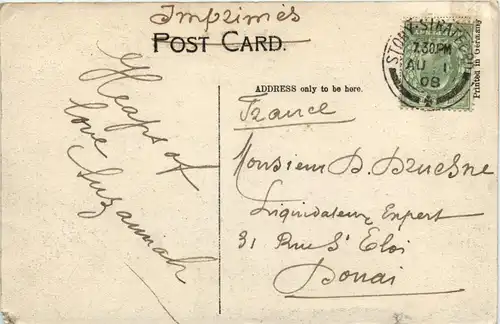 Imprimés
POST CARD.
STONY-STRATFORD
7.30PM
AU 1
08
Printed in Germany
ADDRESS only to be here.
France
Monsieur D. Druesne
Liquidateur Expert
31 Rue St Eloi
Douai
Heaps of
love
Suzannah